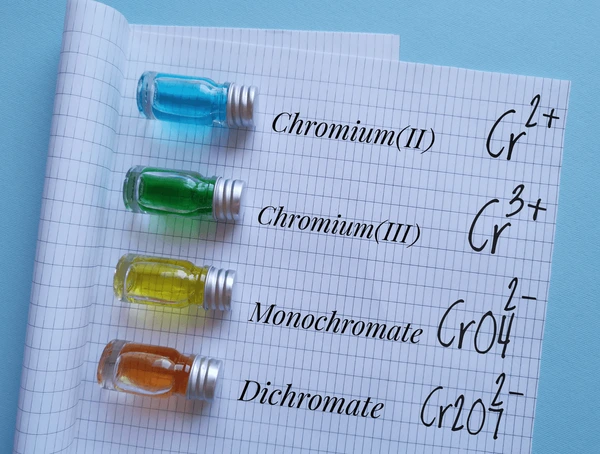 Chromium(II) Cr2+
Chromium(III) Cr3+
Monochromate CrO42-
Dichromate Cr2O72-